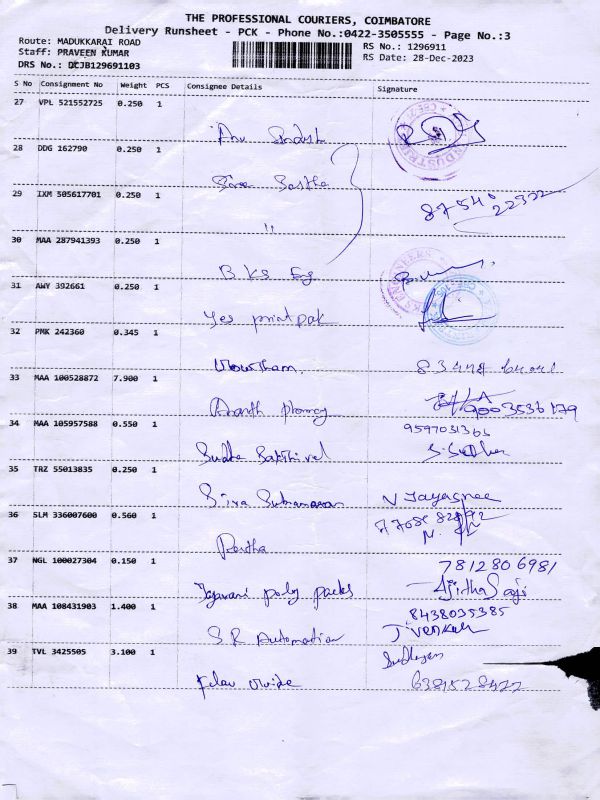 THE PROFESSIONAL COURIERS, COIMBATORE
Delivery Runsheet - PCK - Phone No.:0422-3505555 - Page No.:3
Route: MADUKKARAI ROAD
RS No.: 1296911
Staff: PRAVEEN KUMAR
RS Date: 28-Dec-2023
DRS No.: DCJB129691103
S No Consignment No Weight PCS Consignee Details Signature
27 VPL 521552725 0.250 1
28 DDG 162790 0.250 1
Siva Sastha
29 IXM 505617701 0.250 1
"
30 MAA 287941393 0.250 1
BKS Eng
31 AWY 392661 0.250 1
Yes print pak
32 PMK 242360 0.345 1
33 MAA 100528872 7.900 1
Ananth pharmacy
34 MAA 105957588 0.550 1
Sudha Sakthivel
S. Sudha
35 TRZ 55013835 0.250 1
Siva Subramanian
N Jayasree
36 SLM 336007600 0.560 1
Partha
37 NGL 100027304 0.150 1
7812806981
poly packs
Ajitha Saji
38 MAA 108431903 1.400 1
8438035385
SR Automation
J Venkat
39 TVL 3425505 3.100 1